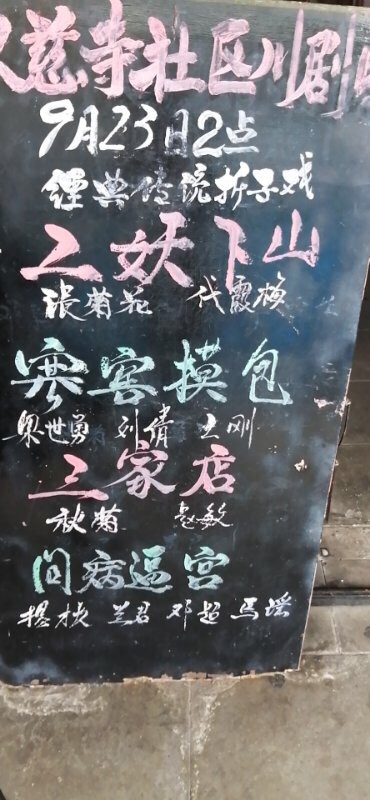 慈寺社区川剧
9月23日2点
經典传统折子戏
二妖下山
張菊花 代霞梅
寒客摸包
梁世勇 刘倩 王刚
三家店
秋菊 赵敏
问病逼宫
楊枝 兰君 邓超 馬瑶